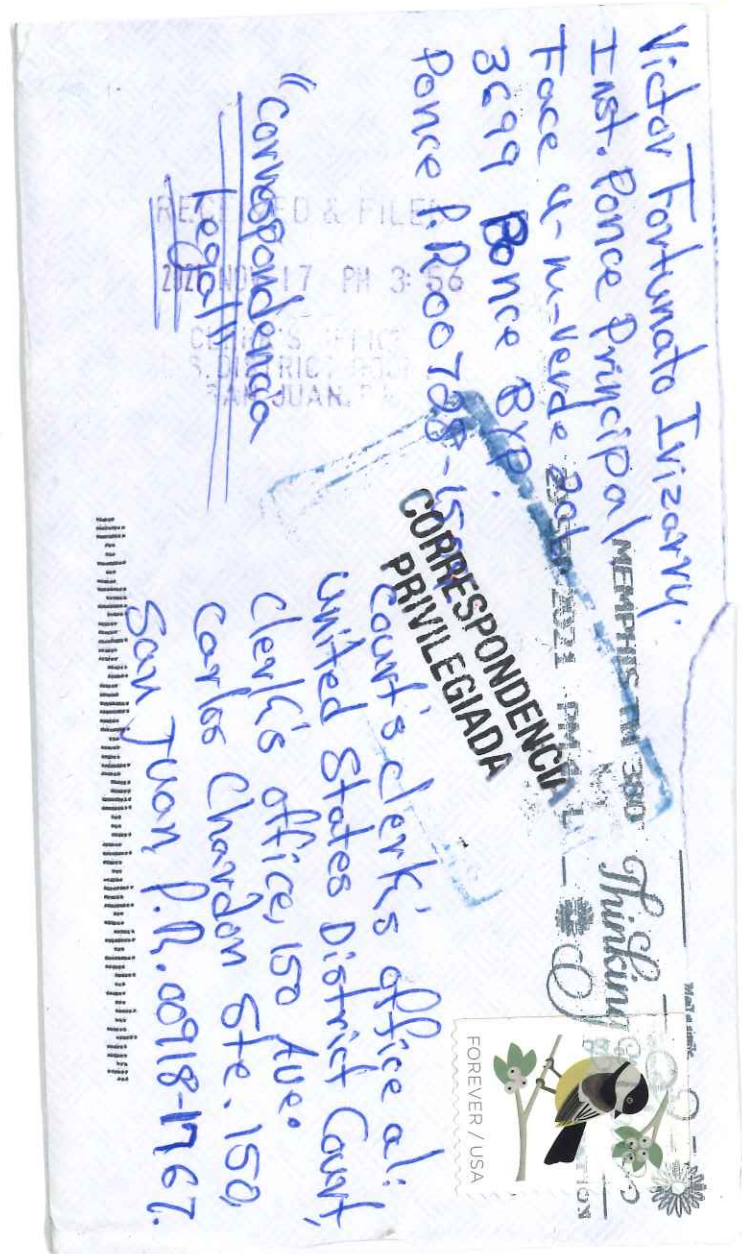 Victor Fortunato Irizarry.
Inst. Ponce Principal
Face 4-M-Verde
3699 Ponce Byp.
Ponce P.R. 00728-
"Correspondencia
Legal"
RECEIVED & FILED
17 PM 3:56
CLERK'S OFFICE
U.S. DISTRICT COURT
SAN JUAN, P.R.
CORRESPONDENCIA
PRIVILEGIADA
MEMPHIS TN 380
2021 PM
Thinking
Mail a smile.
FOREVER / USA
Court's clerk's office al:
United States District Court,
Clerk's office, 150 Ave.
Carlos Chardon Ste. 150,
San Juan, P.R. 00918-1767.